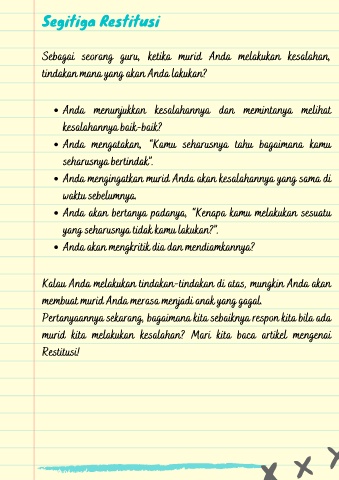 Segitiga Restitusi
Sebagai seorang guru, ketika murid Anda melakukan kesalahan,
tindakan mana yang akan Anda lakukan?
• Anda menunjukkan kesalahannya dan memintanya melihat
kesalahannya baik-baik?
• Anda mengatakan, "Kamu seharusnya tahu bagaimana kamu
seharusnya bertindak".
• Anda mengingatkan murid Anda akan kesalahannya yang sama di
waktu sebelumnya.
• Anda akan bertanya padanya, "Kenapa kamu melakukan sesuatu
yang seharusnya tidak kamu lakukan?".
• Anda akan mengkritik dia dan mendiamkannya?
Kalau Anda melakukan tindakan-tindakan di atas, mungkin Anda akan
membuat murid Anda merasa menjadi anak yang gagal.
Pertanyaannya sekarang, bagaimana kita sebaiknya respon kita bila ada
murid kita melakukan kesalahan? Mari kita baca artikel mengenai
Restitusi!